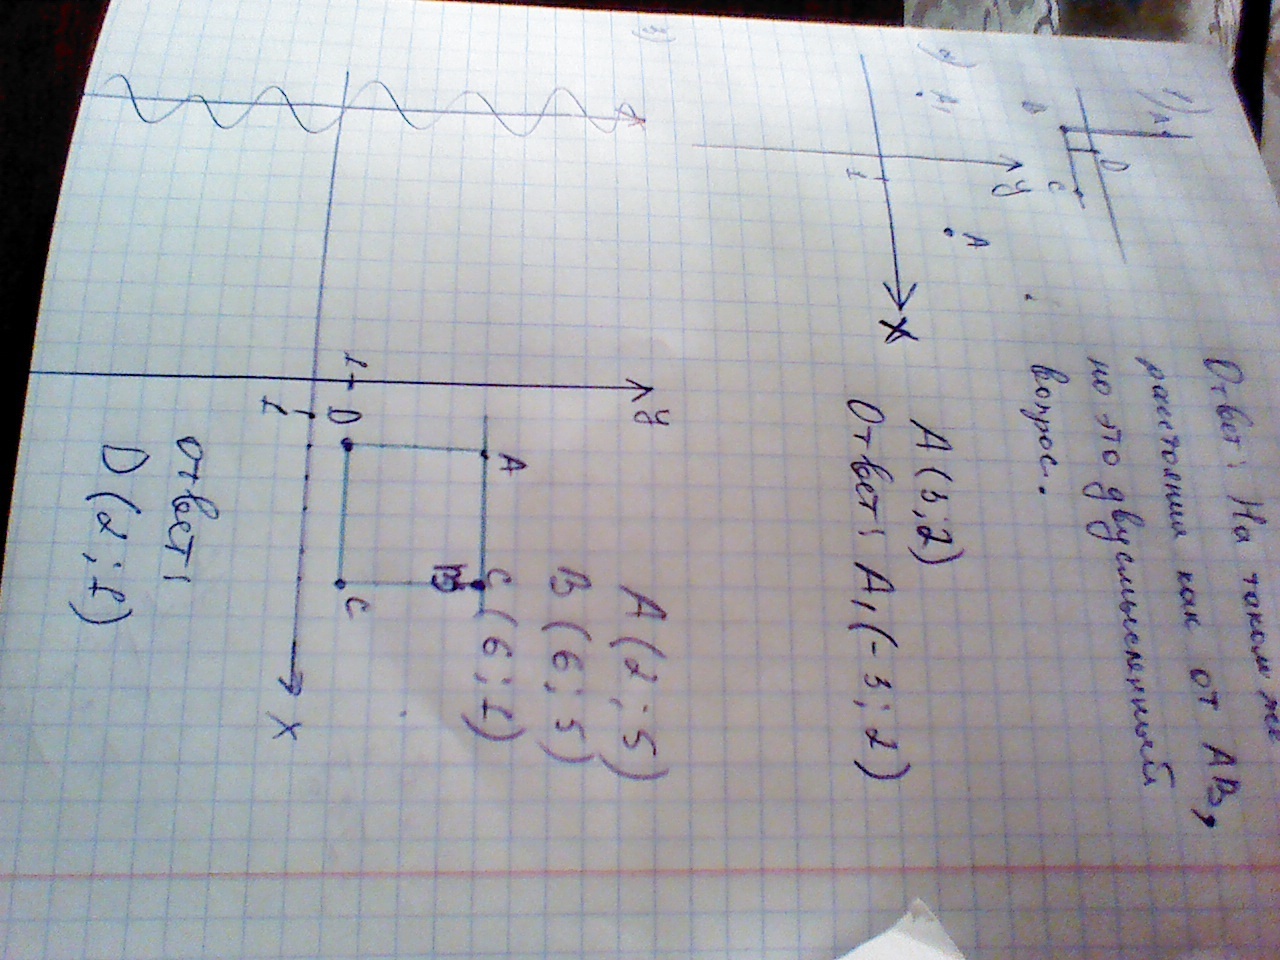 1)
A
D
B
C
Ответ: На таком же
расстоянии как от AB,
но это двусмысленный
вопрос.
2)
A₁
y
A
1
X
A(3;2)
Ответ: A₁(-3;2)
3)
y
A
A(2;5)
B(6;5)
C(6;1)
B
1
D
C
1
X
Ответ:
D(2;1)